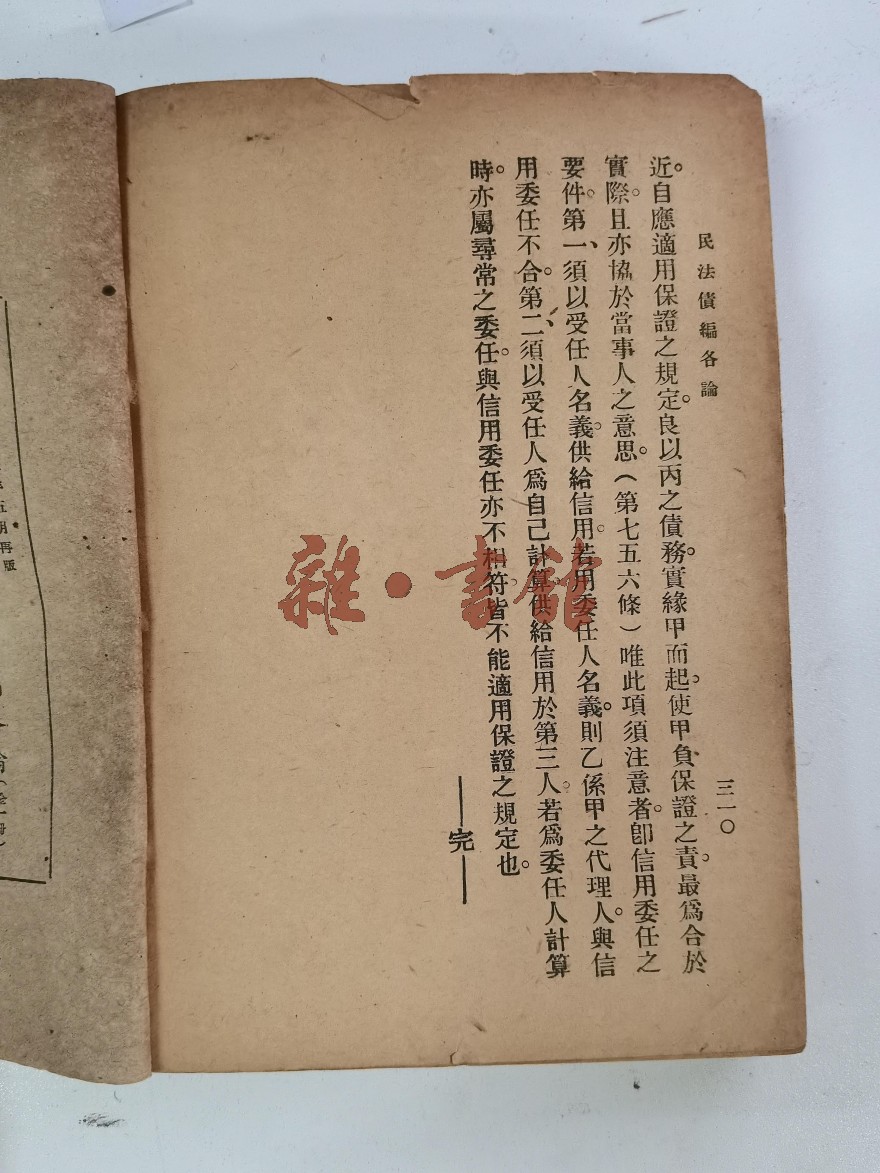 民法債編各論
三一〇
近。自應適用保證之規定。良以丙之債務。實緣甲而起。使甲負保證之責。最爲合於
實際。且亦協於當事人之意思。（第七五六條）唯此項須注意者。卽信用委任之
要件。第一、須以受任人名義。供給信用。若用委任人名義。則乙係甲之代理人。與信
用委任不合。第二、須以受任人爲自己計算。供給信用於第三人。若爲委任人計算
時。亦屬尋常之委任。與信用委任亦不相符。皆不能適用保證之規定也。
——完——
雜·書館
再版